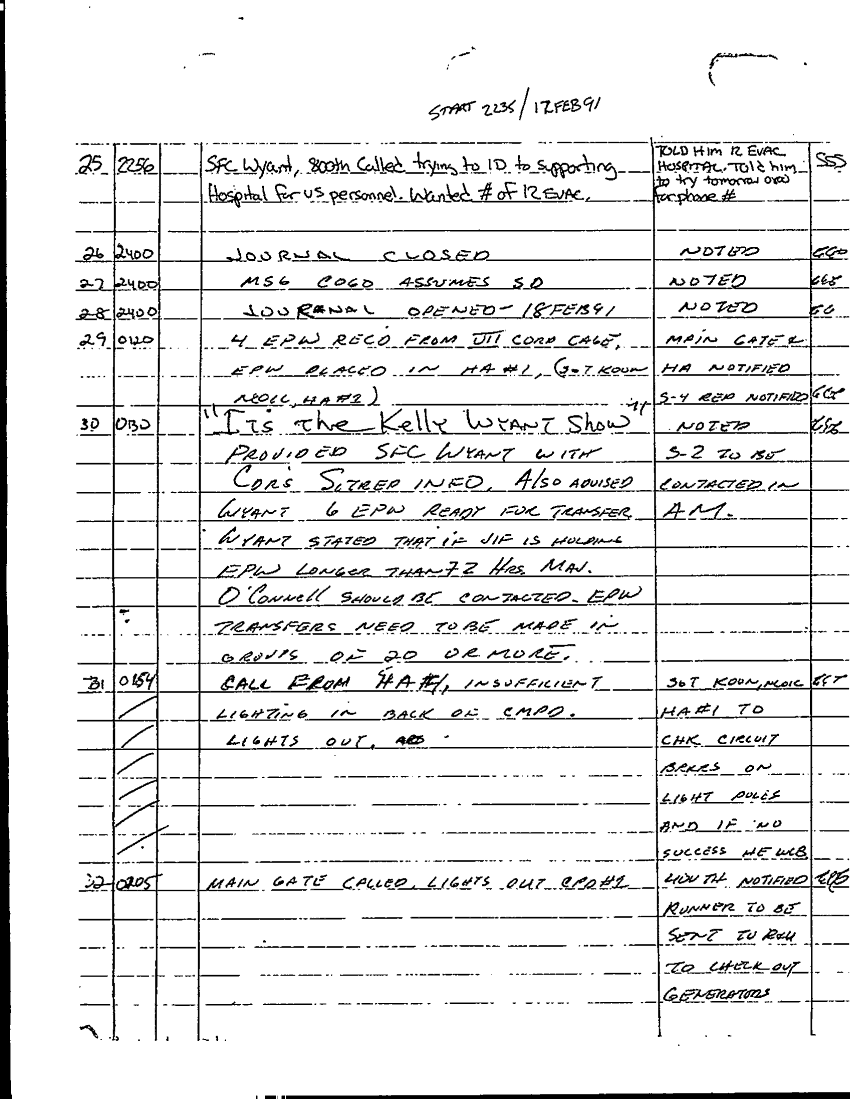 START 2235/17FEB91
25 2256 SFC Wyant, 800th Called trying to ID to supporting
Hospital for US personnel. Wanted # of 12 EVAC.
TOLD Him 12 EVAC
HOSPITAL. Told him
to try tomorrow
for phone #
SSS
26 2400 JOURNAL CLOSED NOTED
27 2400 MSG ASSUMES SD NOTED
28 2400 JOURANAL OPENED - 18FEB91 NOTED
29 0120 4 EPW RECD FROM III CORP CAGE, MAIN GATE &
EPW PLACED IN HA #1, (SGT KOON HA NOTIFIED
NCOIC, HA#1) S-4 REP NOTIFIED
30 0130 "ITS the Kelly WYANT Show" NOTED
PROVIDED SFC WYANT WITH S-2 TO BE
CDRS SITREP INFO. Also ADVISED CONTACTED IN
WYANT 6 EPW READY FOR TRANSFER AM.
WYANT STATED THAT IF JIF IS HOLDING
EPW LONGER THAN 72 HRS. MAJ.
O'CONNELL SHOULD BE CONTACTED. EPW
TRANSFERS NEED TO BE MADE IN
GROUPS OF 20 OR MORE.
31 0154 CALL FROM HA#1, INSUFFICIENT SGT KOON, NCOIC
LIGHTING IN BACK OF CMPD. HA#1 TO
LIGHTS OUT. CHK CIRCUIT
BRKRS ON
LIGHT POLES
AND IF NO
SUCCESS HE WCB
32 0205 MAIN GATE CALLED, LIGHTS OUT CPD#1 NOTIFIED
RUNNER TO BE
SENT TO
TO CHECK OUT
GENERATORS